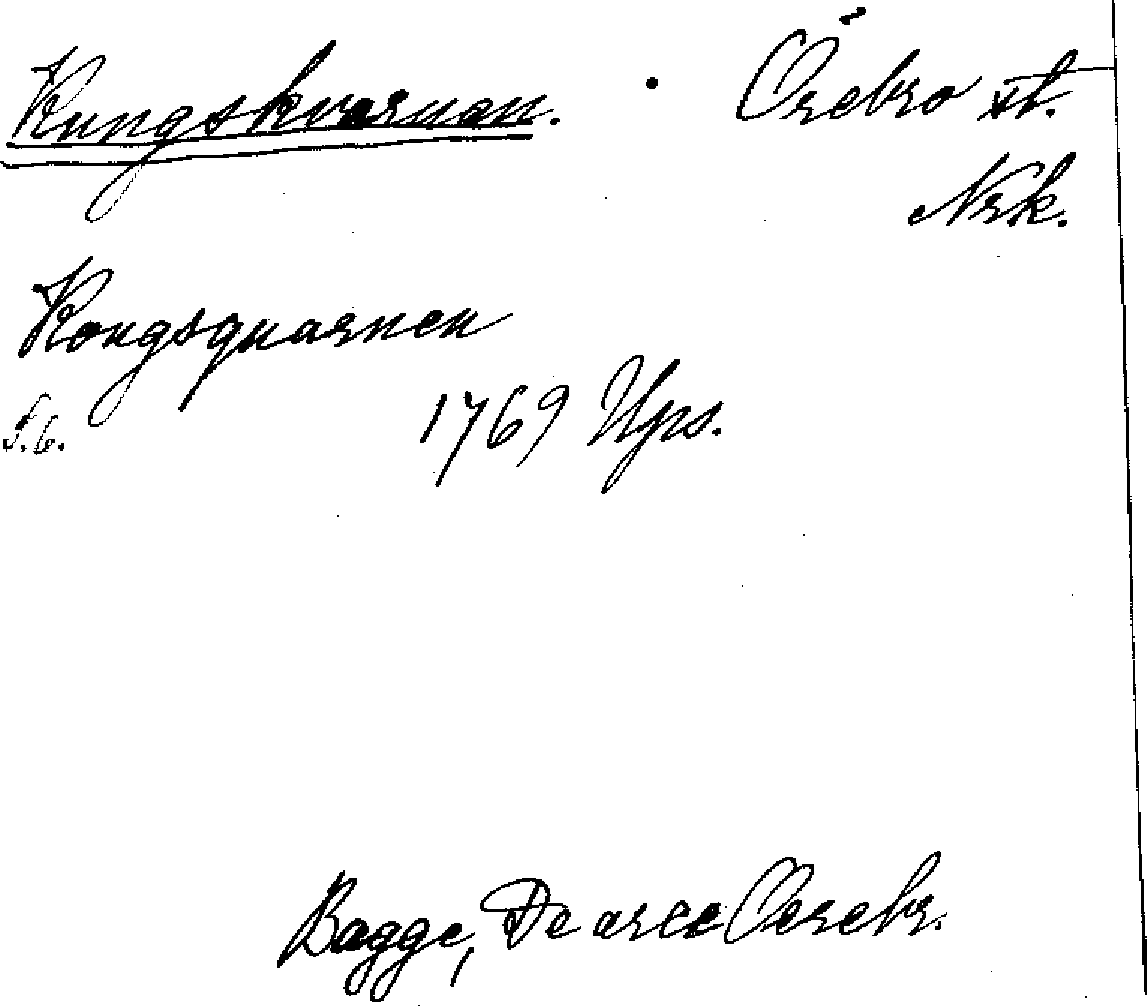 Kungskvarnen. Örebro st.
Nrk.
Kongsquarnen
S. 6. 1769 Ups.
Bagge, De arce Oerebr.